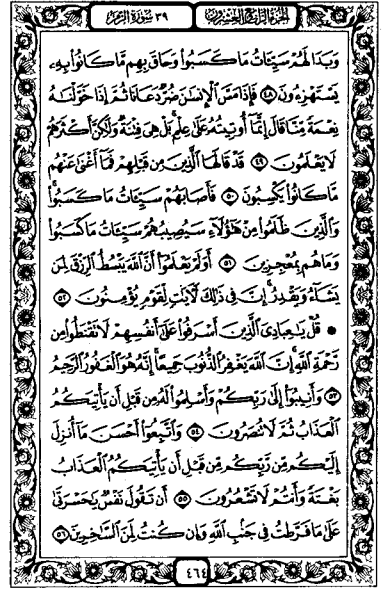 الجزء الرابع والعشرون
٣٩ سورة الزمر
وَبَدَا لَهُمْ سَيِّـَٔاتُ مَا كَسَبُوا۟ وَحَاقَ بِهِم مَّا كَانُوا۟ بِهِۦ
يَسْتَهْزِءُونَ ٤٨ فَإِذَا مَسَّ ٱلْإِنسَٰنَ ضُرٌّ دَعَانَا ثُمَّ إِذَا خَوَّلْنَٰهُ
نِعْمَةً مِّنَّا قَالَ إِنَّمَآ أُوتِيتُهُۥ عَلَىٰ عِلْمٍۭ ۚ بَلْ هِىَ فِتْنَةٌ وَلَٰكِنَّ أَكْثَرَهُمْ
لَا يَعْلَمُونَ ٤٩ قَدْ قَالَهَا ٱلَّذِينَ مِن قَبْلِهِمْ فَمَآ أَغْنَىٰ عَنْهُم
مَّا كَانُوا۟ يَكْسِبُونَ ٥٠ فَأَصَابَهُمْ سَيِّـَٔاتُ مَا كَسَبُوا۟ ۚ
وَٱلَّذِينَ ظَلَمُوا۟ مِنْ هَٰٓؤُلَآءِ سَيُصِيبُهُمْ سَيِّـَٔاتُ مَا كَسَبُوا۟
وَمَا هُم بِمُعْجِزِينَ ٥١ أَوَلَمْ يَعْلَمُوٓا۟ أَنَّ ٱللَّهَ يَبْسُطُ ٱلرِّزْقَ لِمَن
يَشَآءُ وَيَقْدِرُ ۚ إِنَّ فِى ذَٰلِكَ لَءَايَٰتٍ لِّقَوْمٍ يُؤْمِنُونَ ٥٢
۞ قُلْ يَٰعِبَادِىَ ٱلَّذِينَ أَسْرَفُوا۟ عَلَىٰٓ أَنفُسِهِمْ لَا تَقْنَطُوا۟ مِن
رَّحْمَةِ ٱللَّهِ ۚ إِنَّ ٱللَّهَ يَغْفِرُ ٱلذُّنُوبَ جَمِيعًا ۚ إِنَّهُۥ هُوَ ٱلْغَفُورُ ٱلرَّحِيمُ
٥٣ وَأَنِيبُوٓا۟ إِلَىٰ رَبِّكُمْ وَأَسْلِمُوا۟ لَهُۥ مِن قَبْلِ أَن يَأْتِيَكُمُ
ٱلْعَذَابُ ثُمَّ لَا تُنصَرُونَ ٥٤ وَٱتَّبِعُوٓا۟ أَحْسَنَ مَآ أُنزِلَ
إِلَيْكُم مِّن رَّبِّكُم مِّن قَبْلِ أَن يَأْتِيَكُمُ ٱلْعَذَابُ
بَغْتَةً وَأَنتُمْ لَا تَشْعُرُونَ ٥٥ أَن تَقُولَ نَفْسٌ يَٰحَسْرَتَىٰ
عَلَىٰ مَا فَرَّطتُ فِى جَنۢبِ ٱللَّهِ وَإِن كُنتُ لَمِنَ ٱلسَّٰخِرِينَ ٥٦
٤٦٤